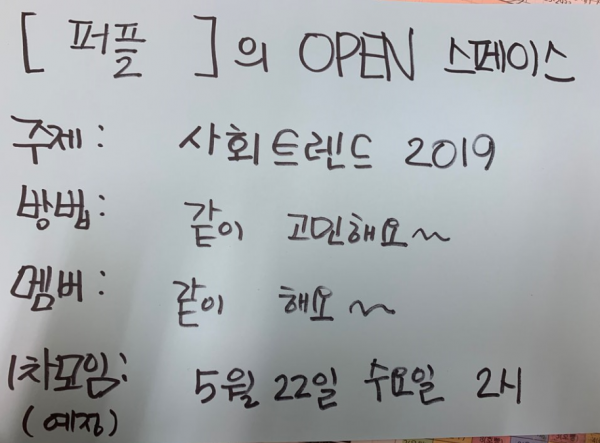 [ 퍼플 ]의 OPEN 스페이스
주제: 사회트렌드 2019
방법: 같이 고민해요~
멤버: 같이 해요~
1차모임: 5월 22일 수요일 2시
(예정)